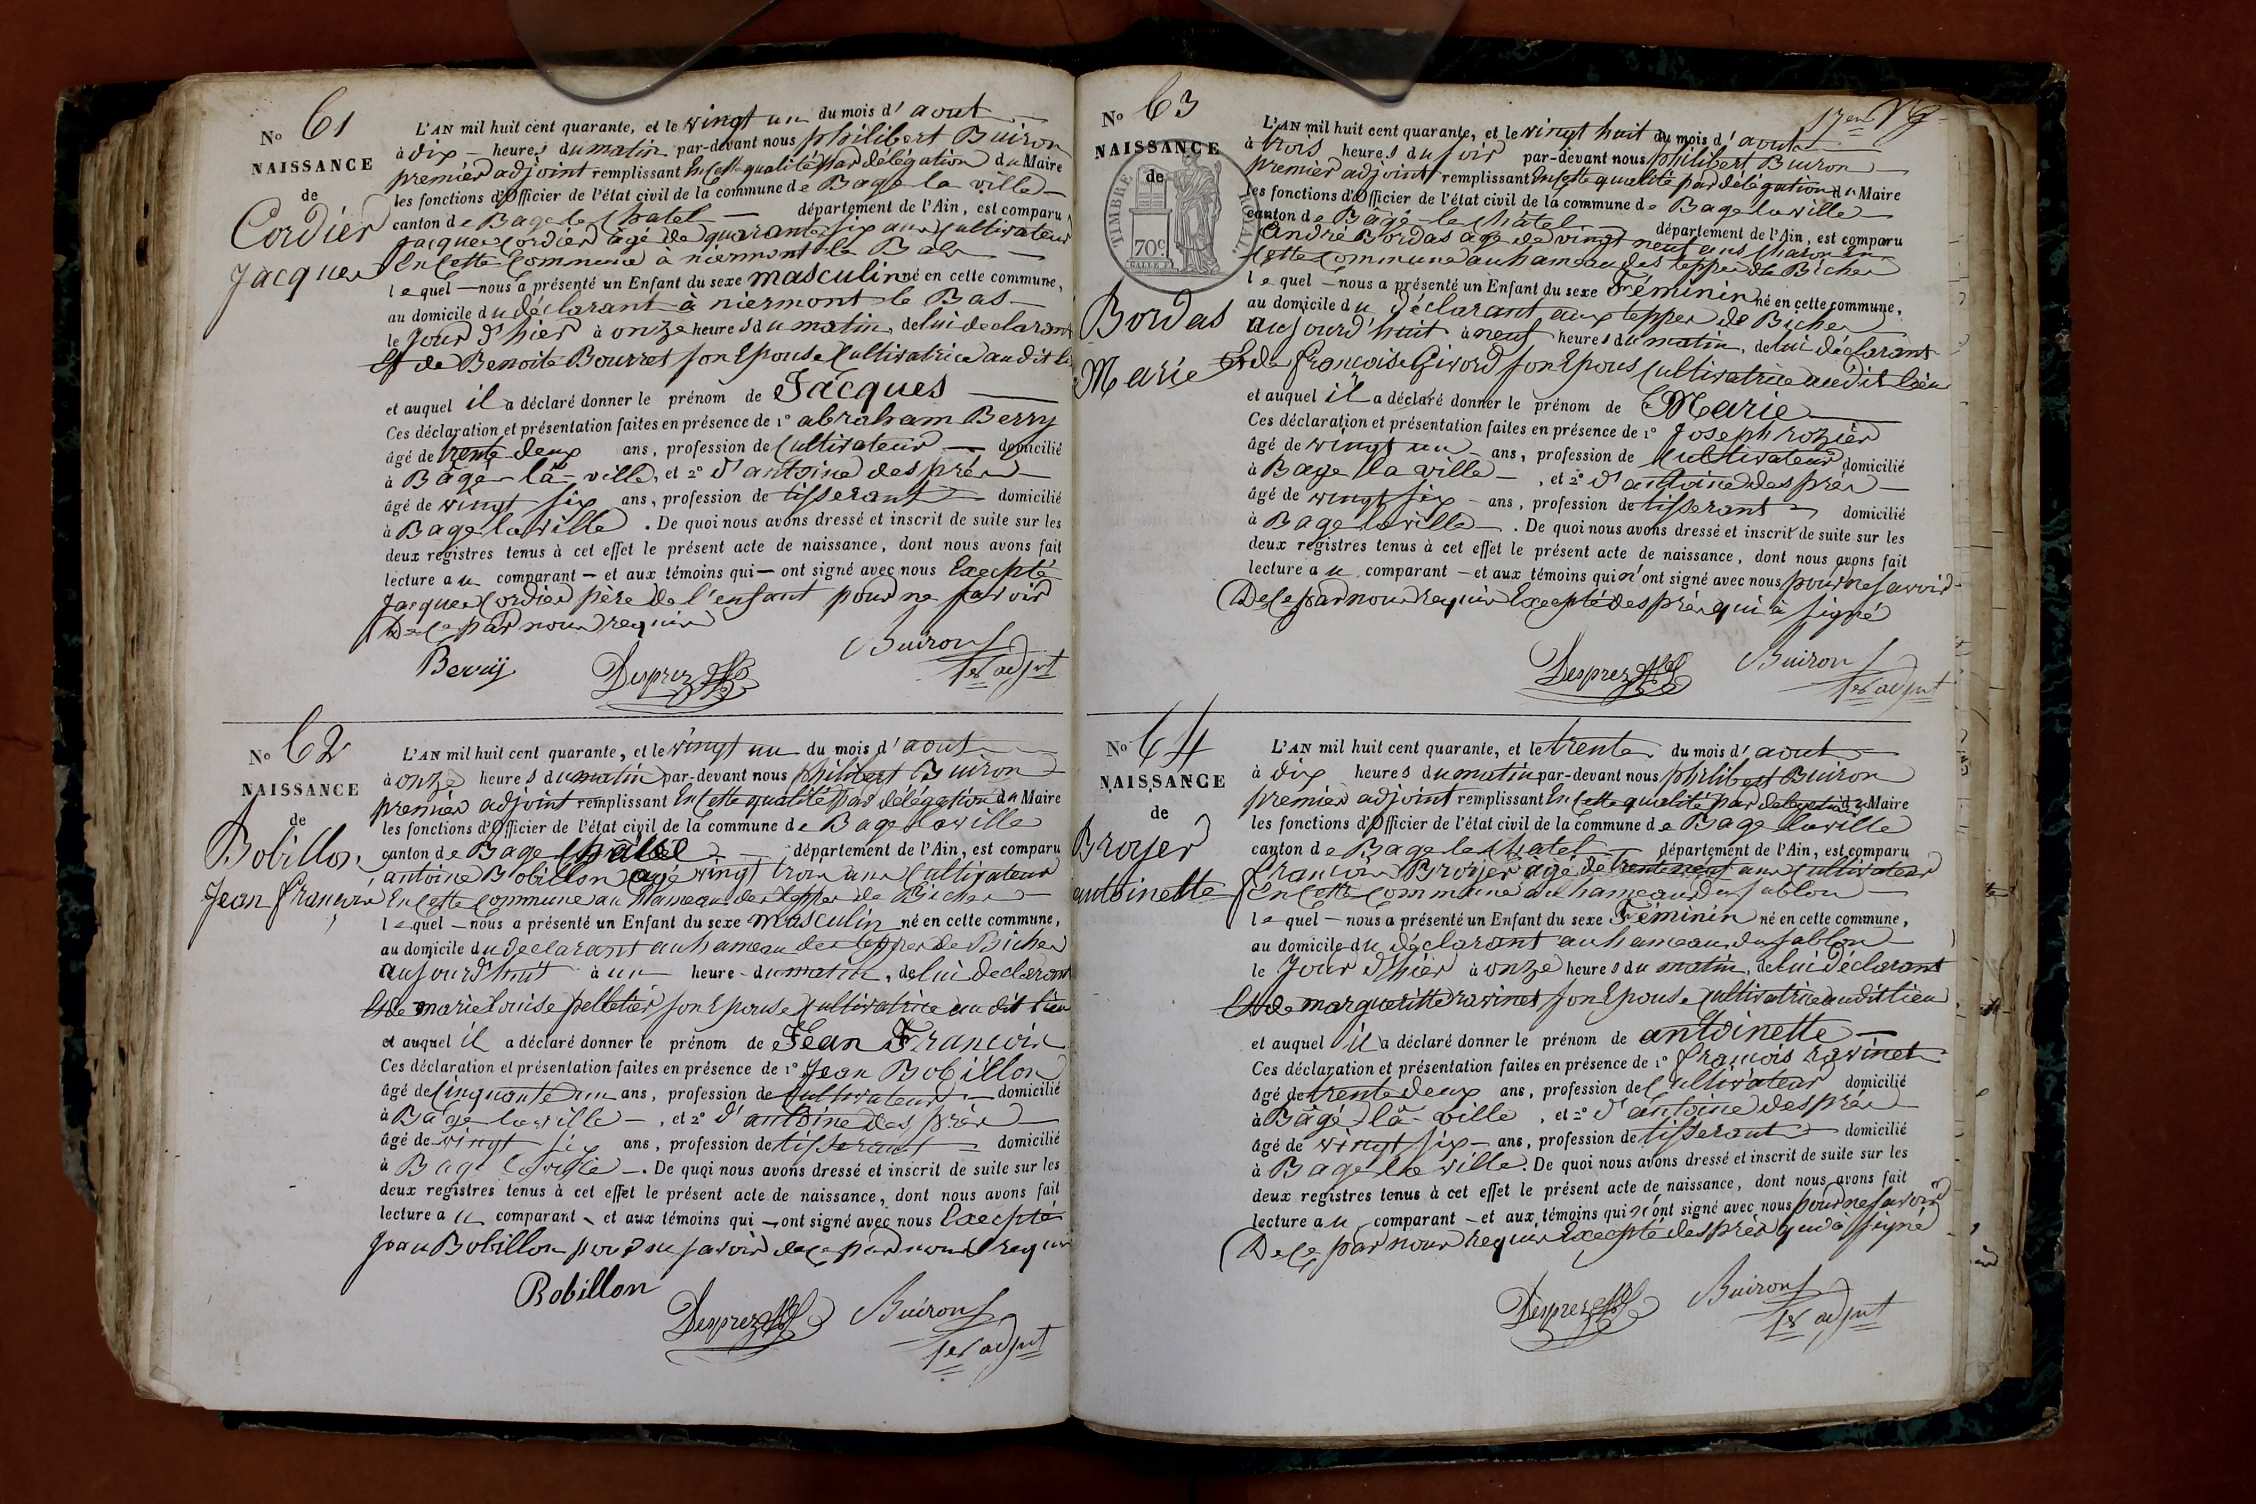 No 61
NAISSANCE
de
Cordier
Jacques
L'AN mil huit cent quarante, et le vingt un du mois d'aout
à dix heures du matin par-devant nous philibert Buiron
premier adjoint remplissant En cette qualité par délégation du Maire
les fonctions d'Officier de l'état civil de la commune de Bage la ville
canton de Bage le Chatel département de l'Ain, est comparu
Jacques Cordier âgé de quarante six ans Cultivateur
En cette Commune a niermont le Bas
lequel nous a présenté un Enfant du sexe masculin né en cette commune,
au domicile du déclarant à niermont le Bas
le Jour d'hier à onze heures du matin, de lui declarant
Et de Benoite Bourret son Epouse Cultivatrice au dit li
et auquel il a déclaré donner le prénom de Jacques
Ces déclaration et présentation faites en présence de 1° abraham Berry
âgé de trente deux ans, profession de Cultivateur domicilié
à Bâgé-la-ville, et 2° d'antoine des prés
âgé de vingt six ans, profession de tisserant domicilié
à Bage la ville. De quoi nous avons dressé et inscrit de suite sur les
deux registres tenus à cet effet le présent acte de naissance, dont nous avons fait
lecture au comparant et aux témoins qui ont signé avec nous Excepté
Jacques Cordier père de l'enfant pour ne savoir
De ce par nous requis
Berry Desprez Buiron
1er adjnt
No 62
NAISSANCE
de
Bobillon
Jean françois
L'AN mil huit cent quarante, et le vingt un du mois d'aout
à onze heures du matin par-devant nous philibert Buiron
premier adjoint remplissant En cette qualité par délégation du Maire
les fonctions d'Officier de l'état civil de la commune de Bage la ville
canton de Bage Chatel département de l'Ain, est comparu
antoine Bobillon agé vingt trois ans Cultivateur
En cette commune au Hameau des teppes de Biches
lequel nous a présenté un Enfant du sexe masculin né en cette commune,
au domicile du declarant au hameau des teppes de Biches
aujourd'huit à un heure du matin, de lui declarant
Et de marie Louise pelletier son Epouse Cultivatrice au dit lieu
et auquel il a déclaré donner le prénom de Jean François
Ces déclaration et présentation faites en présence de 1° Jean Bobillon
âgé de Cinquante un ans, profession de Cultivateur domicilié
à Bage la ville, et 2° d'antoine des prés
âgé de vingt six ans, profession de tisserant domicilié
à Bage la ville. De quoi nous avons dressé et inscrit de suite sur les
deux registres tenus à cet effet le présent acte de naissance, dont nous avons fait
lecture au comparant et aux témoins qui ont signé avec nous Excepté
Jean Bobillon pour ne savoir de ce par nous requis
Bobillon Desprez Buiron
1er adjnt
17em
No 63
NAISSANCE
de
TIMBRE ROYAL
70c
Bordas
Marie
L'AN mil huit cent quarante, et le vingt huit du mois d'aout
à trois heures du soir par-devant nous philibert Buiron
premier adjoint remplissant En cette qualité par délégation du Maire
les fonctions d'Officier de l'état civil de la commune de Bage la ville
canton de Bâgé-le-Châtel département de l'Ain, est comparu
André Bordas âgé de vingt neuf ans Charon En
Cette commune au hameau des teppes de Biches
lequel nous a présenté un Enfant du sexe Féminin né en cette commune,
au domicile du déclarant aux teppes de Biches
aujourd'huit à neuf heures du matin, de lui déclarant
Et de françoise Givord son Epous Cultivatrice au dit lieu
et auquel il a déclaré donner le prénom de Marie
Ces déclaration et présentation faites en présence de 1° Joseph rozier
âgé de vingt un ans, profession de Cultivateur domicilié
à Bage la ville, et 2° d'antoine des prés
âgé de vingt six ans, profession de tisserant domicilié
à Bage la ville. De quoi nous avons dressé et inscrit de suite sur les
deux registres tenus à cet effet le présent acte de naissance, dont nous avons fait
lecture au comparant et aux témoins qui n'ont signé avec nous pour ne savoir
De ce par nous requis Excepté des prés qui à signé
Desprez Buiron
1er adjnt
No 64
NAISSANCE
de
Broyer
antoinette
L'AN mil huit cent quarante, et le trente du mois d'aout
à dix heures du matin par-devant nous philibert Buiron
premier adjoint remplissant En cette qualité par du Maire
les fonctions d'Officier de l'état civil de la commune de Bage la ville
canton de Bage le Chatel département de l'Ain, est comparu
François Broyer âgé de trente neuf ans Cultivateur
En cette commune au hameau du sablon
lequel nous a présenté un Enfant du sexe Féminin né en cette commune,
au domicile du déclarant au hameau du sablon
le Jour d'hier à onze heures du matin, de lui déclarant
Et de margueritte ravinet son Epouse Cultivatrice au dit lieu
et auquel il a déclaré donner le prénom de antoinette
Ces déclaration et présentation faites en présence de 1° François ravinet
âgé de trente deux ans, profession de Cultivateur domicilié
à Bâgé-la-ville, et 2° d'antoine des prés
âgé de vingt six ans, profession de tisserant domicilié
à Bage la ville. De quoi nous avons dressé et inscrit de suite sur les
deux registres tenus à cet effet le présent acte de naissance, dont nous avons fait
lecture au comparant et aux témoins qui n'ont signé avec nous pour ne savoir
De ce par nous requis Excepté des prés qui à signé
Desprez Buiron
1er adjnt